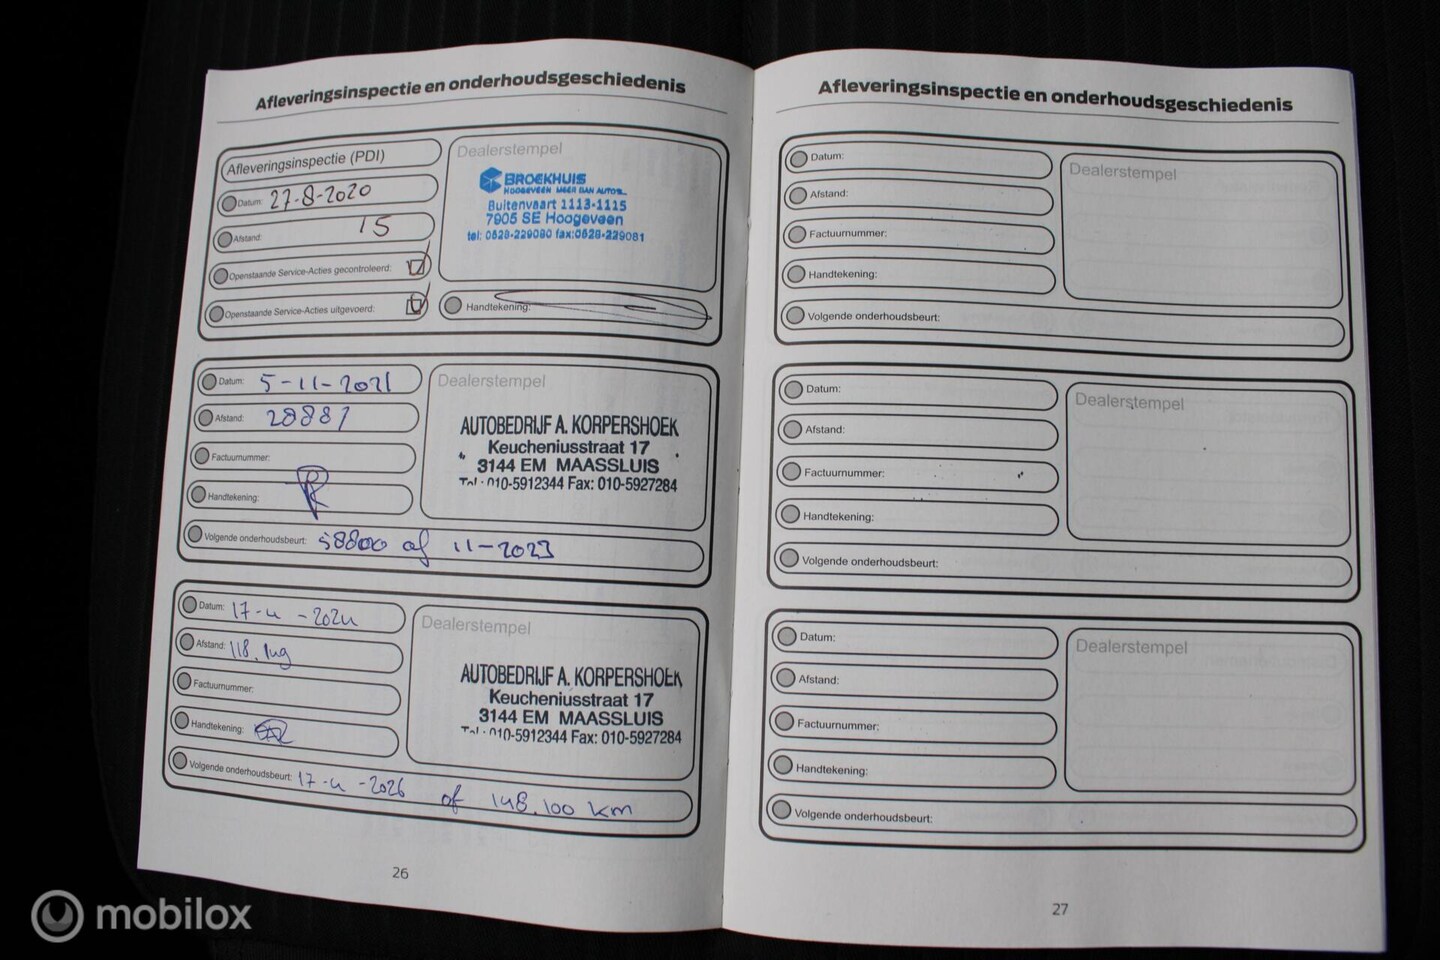 Afleveringsinspectie en onderhoudsgeschiedenis
Afleveringsinspectie (PDI)
Datum: 27-8-2020
Afstand: 15
Openstaande Service-Acties gecontroleerd:
Openstaande Service-Acties uitgevoerd:
Dealerstempel
BROEKHUIS
HOOGEVEEN MEER DAN AUTO'S
Buitenvaart 1113-1115
7905 SE Hoogeveen
tel: 0528-229080 fax:0528-229081
Handtekening:
Datum: 5-11-2021
Afstand: 28881
Factuurnummer:
Handtekening:
Volgende onderhoudsbeurt: 58800 of 11-2023
Dealerstempel
AUTOBEDRIJF A. KORPERSHOEK
Keucheniusstraat 17
3144 EM MAASSLUIS
Tel: 010-5912344 Fax: 010-5927284
Datum: 17-4-2024
Afstand: 118.149
Factuurnummer:
Handtekening:
Volgende onderhoudsbeurt: 17-4-2026 of 148.100 km
Dealerstempel
AUTOBEDRIJF A. KORPERSHOEK
Keucheniusstraat 17
3144 EM MAASSLUIS
Tel: 010-5912344 Fax: 010-5927284
26
Afleveringsinspectie en onderhoudsgeschiedenis
Datum:
Afstand:
Factuurnummer:
Handtekening:
Volgende onderhoudsbeurt:
Dealerstempel
Datum:
Afstand:
Factuurnummer:
Handtekening:
Volgende onderhoudsbeurt:
Dealerstempel
Datum:
Afstand:
Factuurnummer:
Handtekening:
Volgende onderhoudsbeurt:
Dealerstempel
27
mobilox